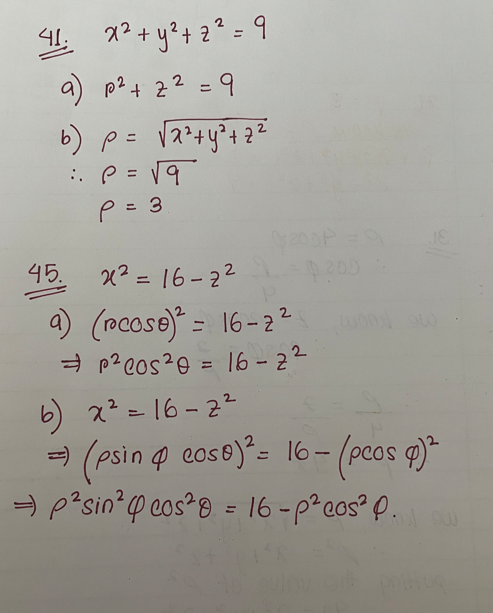 41. x² + y² + z² = 9
a) r² + z² = 9
b) ρ = √(x² + y² + z²)
∴ ρ = √9
ρ = 3
45. x² = 16 - z²
a) (rcosθ)² = 16 - z²
⇒ r²cos²θ = 16 - z²
b) x² = 16 - z²
⇒ (ρsin φ cosθ)² = 16 - (ρcos φ)²
⇒ ρ²sin²φcos²θ = 16 - ρ²cos²φ.